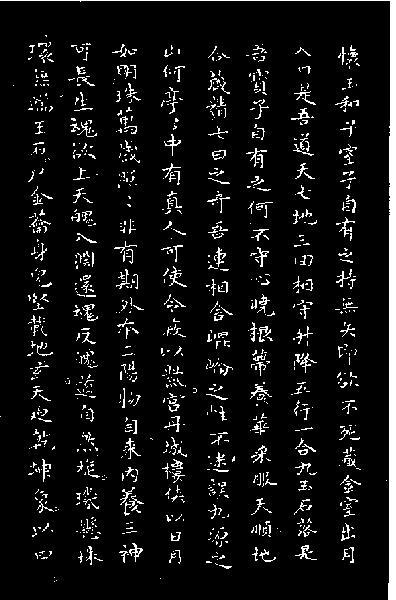 懷玉和子室子自有之持無失即欲不死藏金室出月
入日是吾道天七地三回相守升降五行一合九玉石落是
吾寶子自有之何不守心曉根蒂養華采服天順地
合藏精七日之奇吾連相合崐崘之性不迷誤九源之
山何亭〻中有真人可使令蔽以紫宮丹城樓俠以日月
如明珠萬歲照〻非有期外本三陽物自來內養三神
可長生魂欲上天魄入淵還魂反魄道自然旋璣懸珠
環無端玉石戶金籥身完堅載地玄天迴乾坤象以四